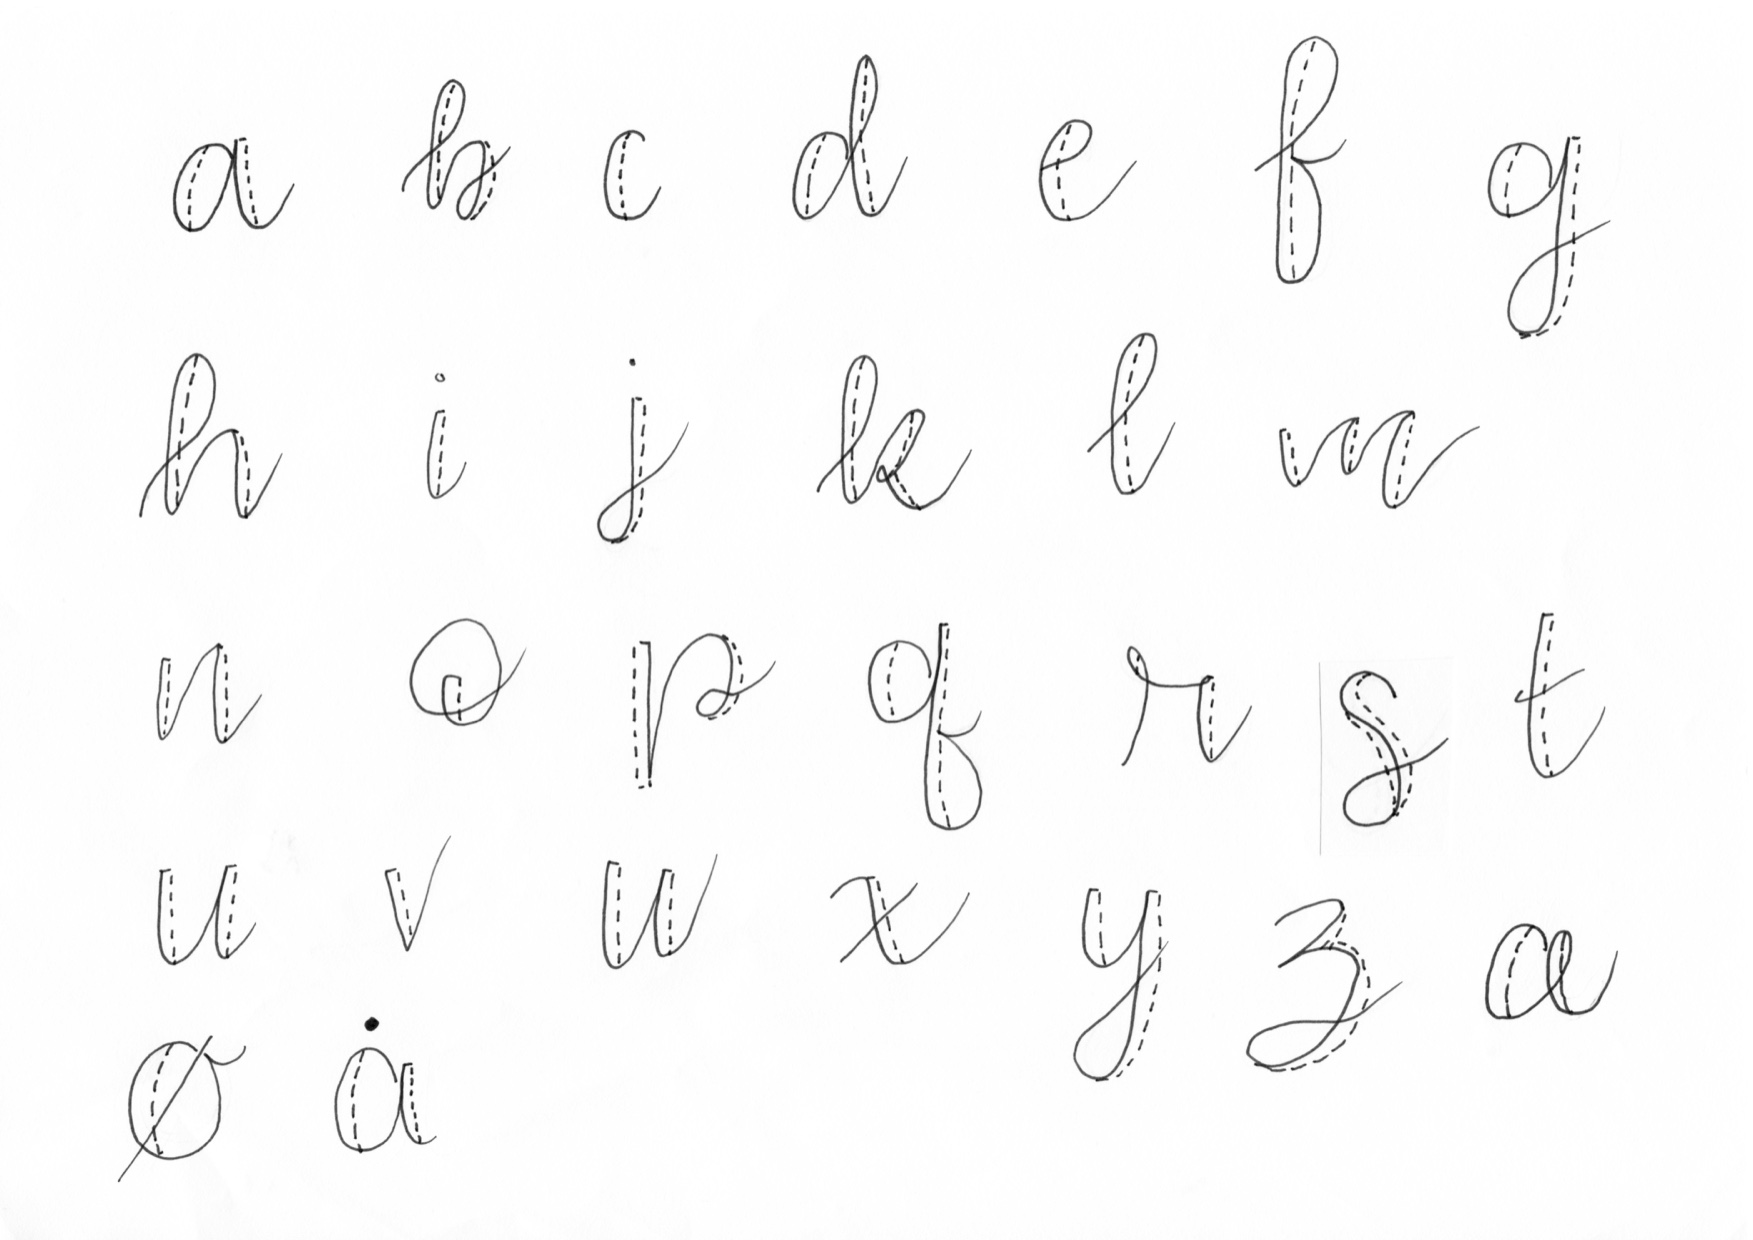 a b c d e f g
h i j k l m
n o p q r s t
u v w x y z æ
ø å